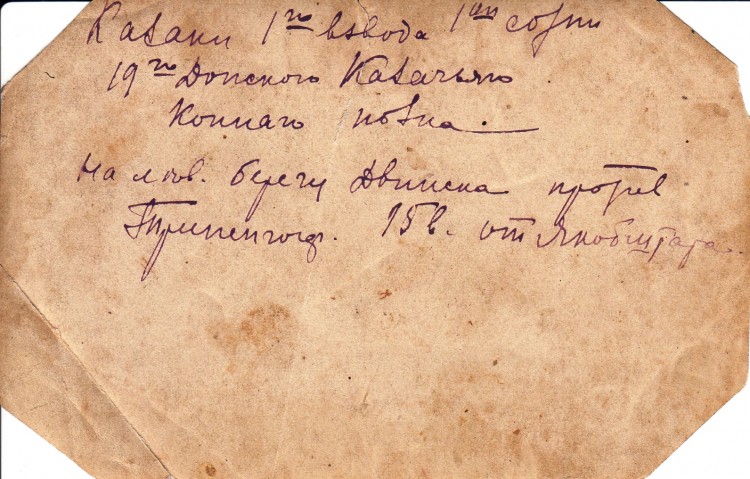 Казаки 1го взвода 1ой сотни
19го Донского Казачьяго
Коннаго полка
На лев. берегу Двинска против
15в. от Якобштата.